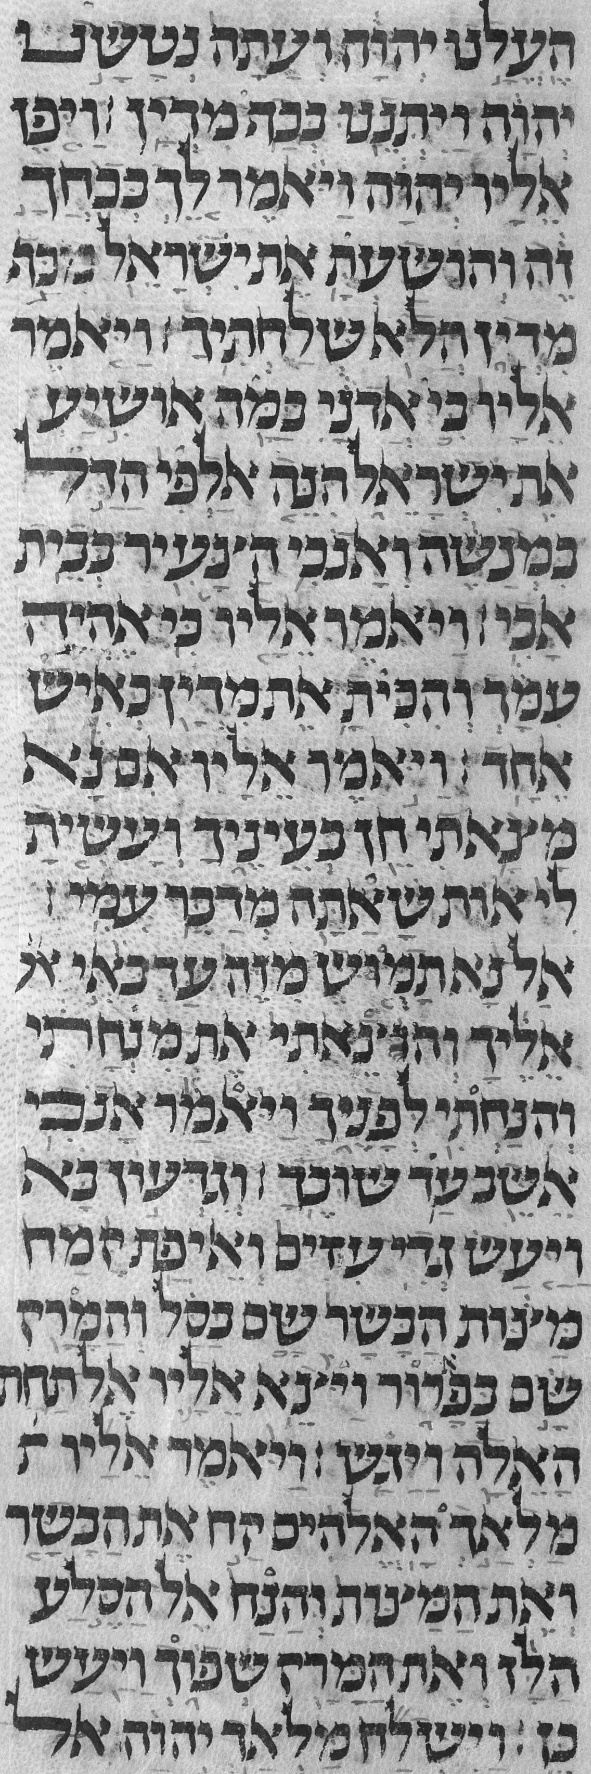 העלנו יהוה ועתה נטשנו
יהוה ויתננו בכף מדין ׃ ויפן
אליו יהוה ויאמר לך בכחך
זה והושעת את ישראל מכף
מדין הלא שלחתיך ׃ ויאמר
אליו בי אדני במה אושיע
את ישראל הנה אלפי הדל
במנשה ואנכי הצעיר בבית
אבי ׃ ויאמר אליו כי אהיה
עמך והכית את מדין כאיש
אחד ׃ ויאמר אליו אם נא
מצאתי חן בעיניך ועשית
לי אות שאתה מדבר עמי ׃
אל נא תמוש מזה עד באי א
אליך והוצאתי את מנחתי
והנחתי לפניך ויאמר אנכי
אשב עד שובך ׃ וגדעון בא
ויעש גדי עזים ואיפת קמח
מצות הבשר שם בסל והמרק
שם בפרור ויוצא אליו אל תחת
האלה ויגש ׃ ויאמר אליו ת
מלאך האלהים קח את הבשר
ואת המצות והנח אל הסלע
הלז ואת המרק שפוך ויעש
כן ׃ וישלח מלאך יהוה את